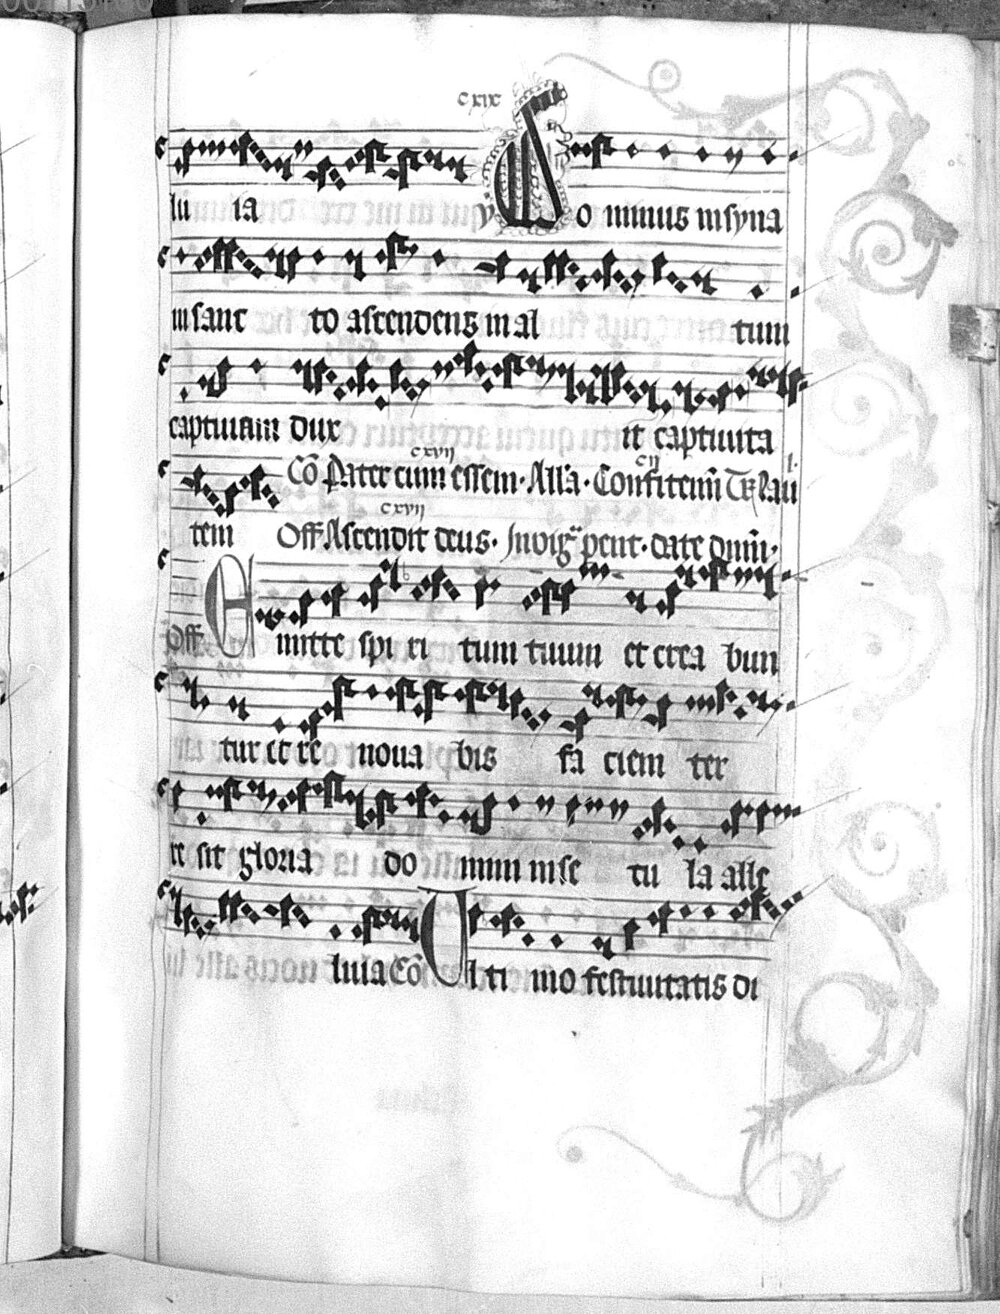 cxix
lu ia y Do minus in syna
in sanc to ascendens in al tum
captiuam dux it captiuita
cxvii cii
Co Pater cum essem · Alla · Confitemi
tem Off Ascendit deus · date dnm ·
cxvii
Off Emitte spi ri tum tuum et crea bun
tur et re noua bis fa ciem ter
re sit gloria do mini in se cu la alle
luia Co Ul ti mo festiuitatis di